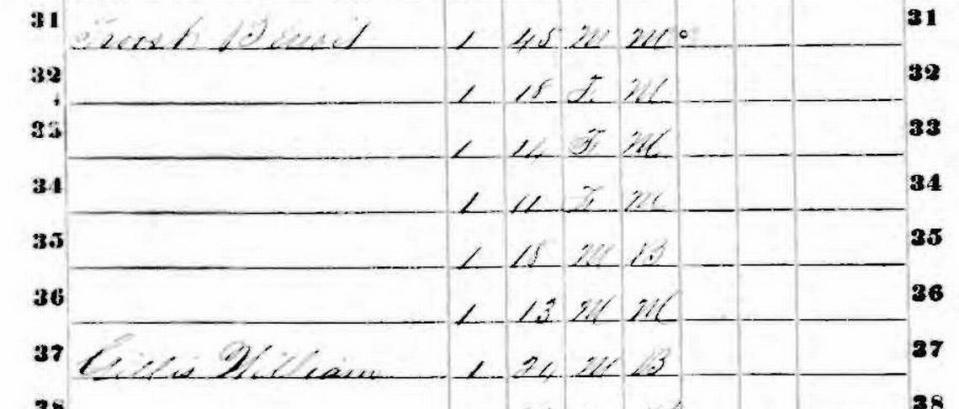 31 1 45 M M 31
32 1 18 F. M 32
33 1 14 F M 33
34 1 11 F M 34
35 1 18 M B 35
36 1 13 M M 36
37 Gillis William 1 24 M B 37
38 38